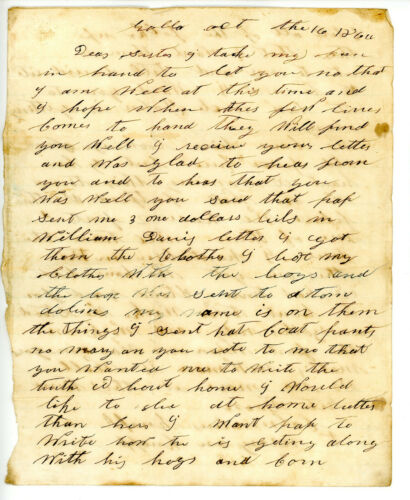 oct the 16 1864
Dear Sister I take my pen
in hand to let you no that
I am Well at this time and
I hope When thes few lines
Comes to hand they Will find
you Well I receive your letter
and Was glad to hear from
you and to hear that you
Was Well you said that pap
Sent me 3 one dollars bils in
William Davis letter I got
them the Clothes I box my
Clothes With the boys and
the box Was Sent to
my name is on them
the things I Sent hat Coat pants
no mary an you rote to me that
you Wanted me to Write the
truth bout home I Would
like to be at home better
than here I Want pap to
Write how he is geting along
With his hogs and Corn